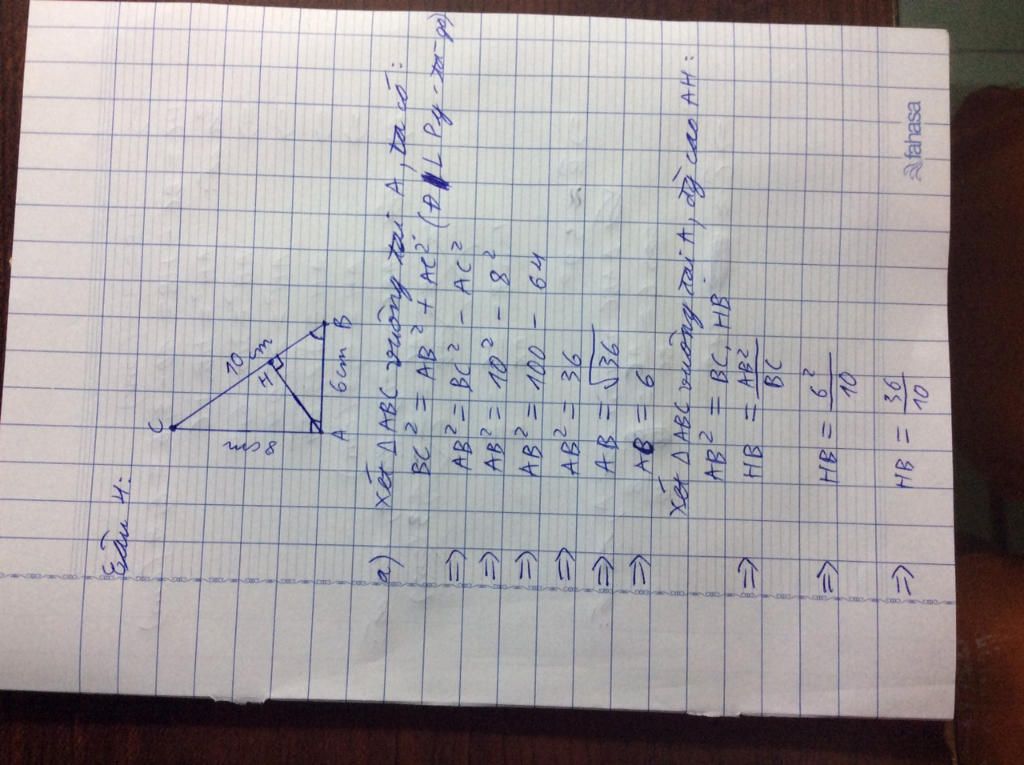 Câu 4:
C
8cm
10cm
H
A
6cm
B
a) Xét ΔABC vuông tại A, ta có:
BC² = AB² + AC² (ĐL Py-ta-go)
=> AB² = BC² - AC²
=> AB² = 10² - 8²
=> AB² = 100 - 64
=> AB² = 36
=> AB = √36
=> AB = 6
Xét ΔABC vuông tại A, đg cao AH:
AB² = BC. HB
=> HB = AB²/BC
=> HB = 6²/10
=> HB = 36/10
fahasa